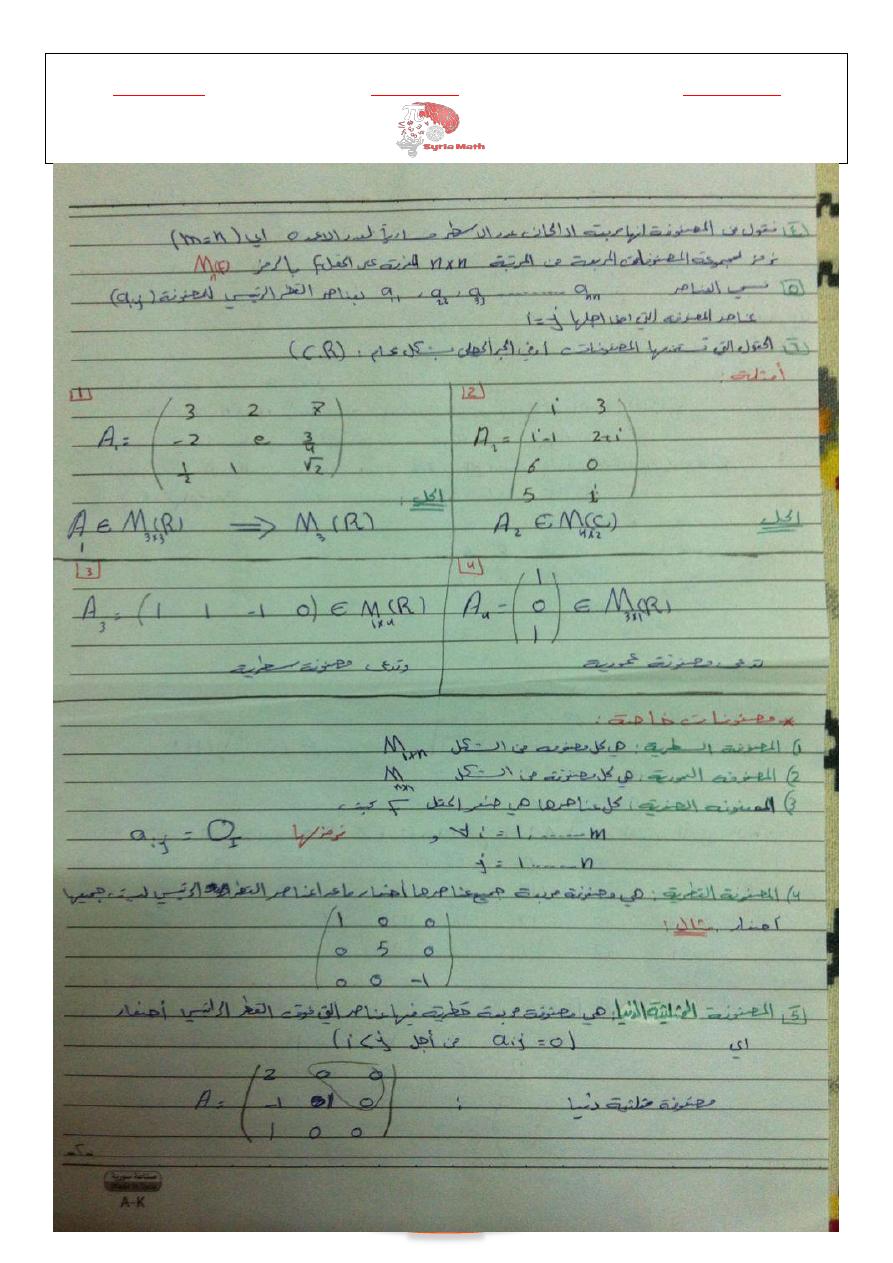 Syria Math
[٤] نقول عن المصفوفة انها مربعة اذا كان عدد الاسطر مساوياً لعدد الاعمدة اي (m=n)
نرمز لمجموعة المصفوفات المربعة من المرتبة n×n المعرفة على الحقل F بالرمز Mn(F)
[٥] نسمي العناصر a11 , a22 , a33 ............ ann بعناصر القطر الرئيسي للمصفوفة (aij)
عناصر المصفوفة التي من اجلها i=j
[٦] الحقول التي تستخدمها المصفوفات في الجبر الخطي بشكل عام : (C,R)
أمثلة :
[1]
A1 = ( 3 2 7
-2 e 3/4
1/2 1 √2 )
الحل :
A1 ∈ M3×3(R) ⟹ M3(R)
[2]
A2 = ( i 3
i-1 2+i
6 0
5 i )
الحل
A2 ∈ M4×2(C)
[3]
A3 = (1 1 -1 0) ∈ M1×4(R)
وتدعى مصفوفة سطرية
[4]
A4 = ( 1
0
1 ) ∈ M3×1(R)
تدعى مصفوفة عمودية
* مصفوفات خاصة :
1) المصفوفة السطرية : هي كل مصفوفة من الشكل M1×n
2) المصفوفة العمودية : هي كل مصفوفة من الشكل Mn×n
3) المصفوفة الصفرية : كل عناصرها هي صفر الحقل F بحيث
aij = OF نرمز لها , ∀ i = 1 ...... m
j = 1 ...... n
4) المصفوفة القطرية : هي مصفوفة مربعة جميع عناصرها أصفار ماعدا عناصر القطر الرئيسي ليست جميعها
أصفار مثال :
( 1 0 0
0 5 0
0 0 -1 )
[5] المصفوفة المثلثية الدنيا : هي مصفوفة مربعة قطرية فيها عناصر التي فوق القطر الرئيسي أصفار
اي (aij = 0 من أجل i<j)
A = ( 2 0 0
-1 1 0
1 0 0 ) : مصفوفة مثلثية دنيا
-٢-
صناعة سورية
A-K